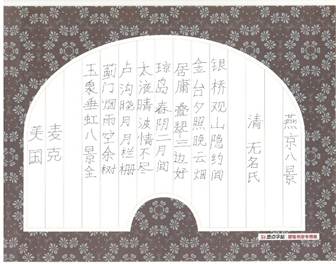 燕京八景
清 无名氏
银桥观山隐约间
金台夕照晚云烟
居庸叠翠三边好
琼岛春阴二月
太液晴波情不尽
卢沟晓月月栏栅
蓟门烟雨空余树
玉泉垂虹八景全
麦克
美国
墨点字帖